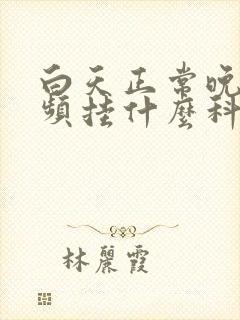 白天正常晚
頻挂什麼科
林麗霞